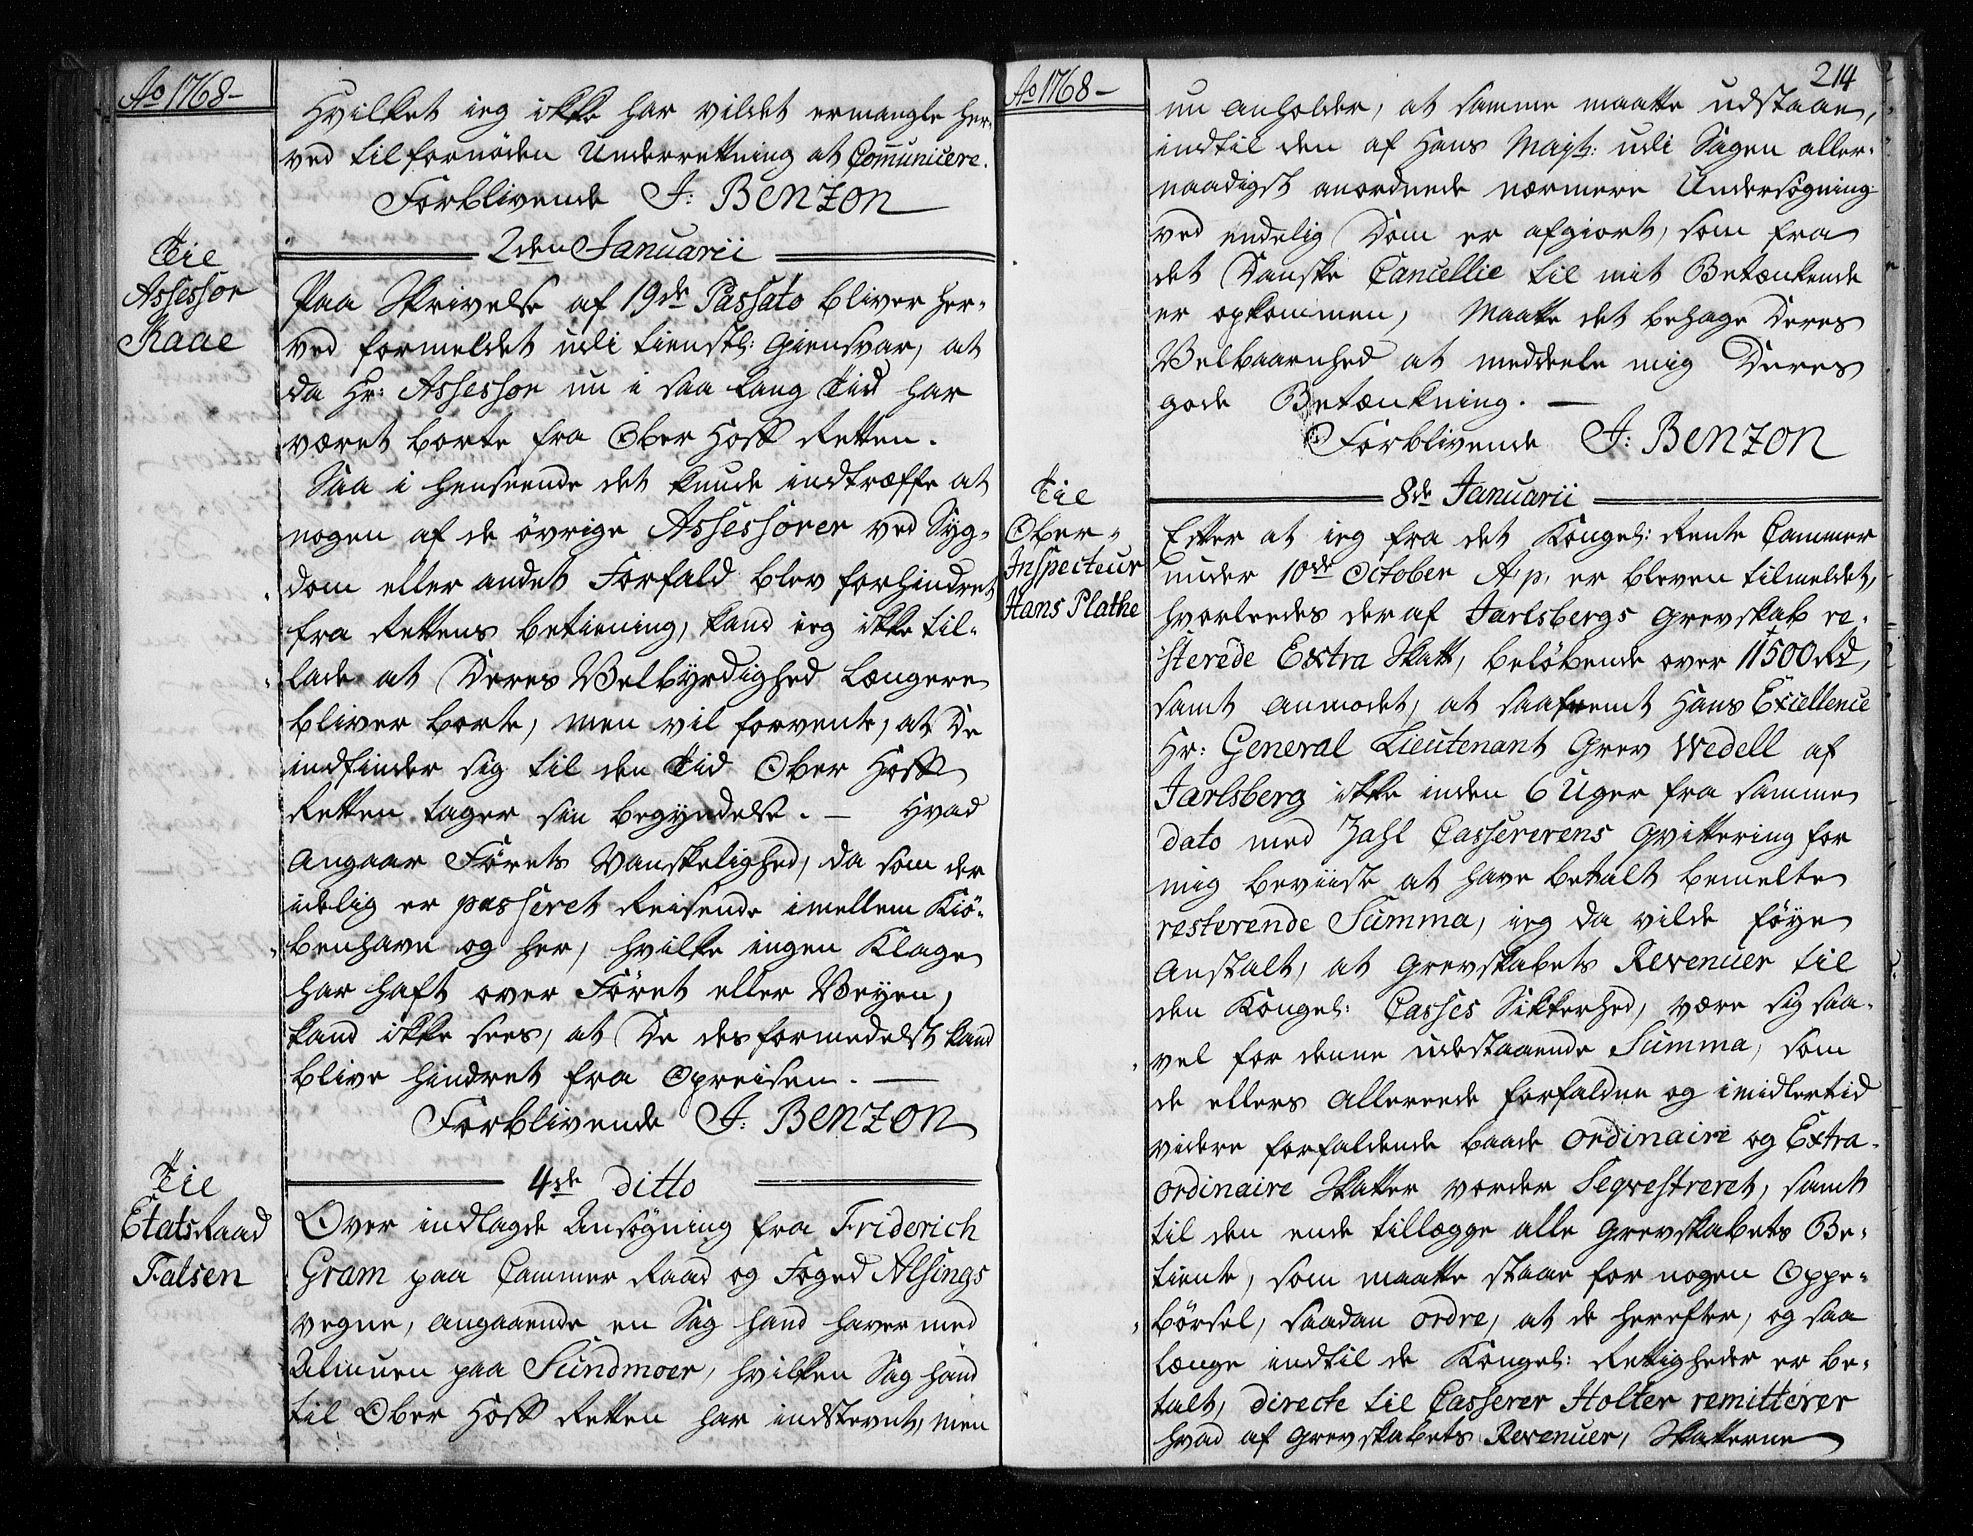 Ao 1768-
Hvilket ieg ikke har vildet ermangle her-
ved til fornøden Underretning at Communicere.
Forblivende J: Benzon
2den Januarii
Til
Assessor
Raae
Paa Skrivelse af 19de Passato bliver her-
ved formeldet udi tienstl: Giensvar, at
da Hr: Assessor nu i saa lang Tid har
været borte fra Ober Hoff Retten.
Saa i henseende det kunde indtræffe at
nogen af de övrige Assessorer ved Syg-
dom eller andet Forfald blev forhindret
fra Rettens betiening, kand ieg ikke til-
lade at Deres Velbyrdighed længere
bliver borte, men vil forvente, at De
indfinder sig til den Tid Ober Hoff
Retten tager sin begyndelse. — Hvad
angaar Förets Vanskelighed, da som der
idelig er passeret Reisende imellem Kiö-
benhavn og her, hvilke ingen Klage
har haft over Föret eller Veyen,
kand ikke sees, at De desformedelst kand
blive hindret fra Opreisen. —
Forblivende J: Benzon
4de ditto
Til
Etats Raad
Falsen
Over indlagde Ansøgning fra Friderich
Gram paa Cammer Raad og Foged Alsings
vegne, angaaende en Sag hand haver med
Almuen paa Sundmoer, hvilken Sag hand
til Ober Hoff Retten har indstevnt, men
Ao 1768-
214
nu anholder, at samme maatte udstaae,
indtil den af Hans Mayt: udi Sagen aller-
naadigst anordnede nærmere Undersøgning
ved endelig Dom er afgiort, som fra
det Danske Cancellie til mit Betænkende
er opkommen, Maatte det behage Deres
Velbaarnhed at meddeele mig Deres
gode Betænkning. —
Forblivende J: Benzon
8de Januarii
Til
Ober-
Inspecteur
Hans Plathe
Efter at ieg fra det Kongel: Rente Cammer
under 10de October A: p. er bleven tilmeldet,
hvorleedes der af Jarlsbergs Grevskab re-
sterede Extra Skatt, beløbende over 11500 Rd,
samt anmodet, at saafremt Hans Excellence
Hr: General Lieutenant Grev Wedell af
Jarlsberg ikke inden 6 Uger fra samme
dato med Zahl Casserererens Qvittering for
mig beviiste at have betalt bemelte
resterende Summa, ieg da vilde føye
Anstalt, at Grevskabets Revenuer til
den Kongel: Casses Sikkerhed, være sig saa-
vel for denne udestaaende Summa, som
de ellers allereede forfaldne og imidlertid
videre forfaldende baade ordinaire og Extra-
ordinaire Skatter vorder Seqvestreret, samt
til den ende tillægge alle Grevskabets Be-
tiente, som maatte staae for nogen Oppe-
börsel, saadan ordre, at de herefter, og saa
længe indtil de Kongel: Rettigheder er be-
talt, directe til Casserer Holter remitterer
hvad af Grevskabets Revenuer, Skatterne